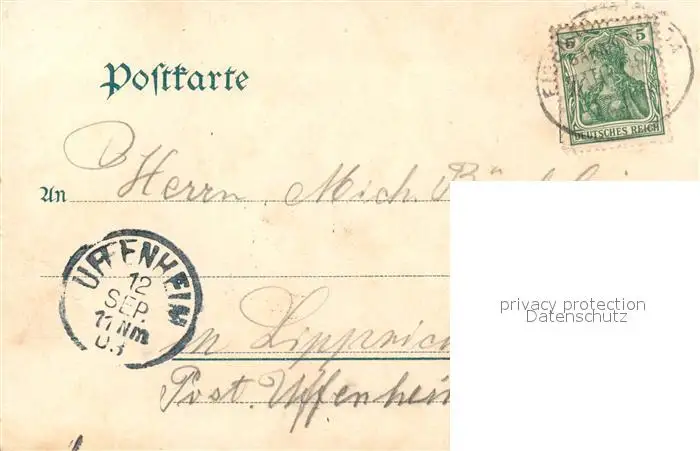 Postkarte
5 5
DEUTSCHES REICH
An Herrn Mich.
UFFENHEIM
12
SEP.
11 Nm
03
in Lipprich
Post. Uffenheim
privacy protection
Datenschutz